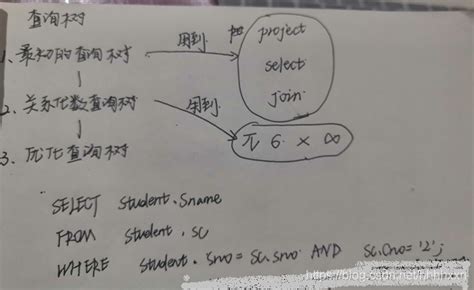 查询树
1、最初的查询树 用到 project
select
join
2、关系代数查询树 用到 π σ × ∞
3、优化查询树
SELECT student.Sname
FROM student, SC
WHERE student.Sno = SC.Sno AND SC.Cno='2';